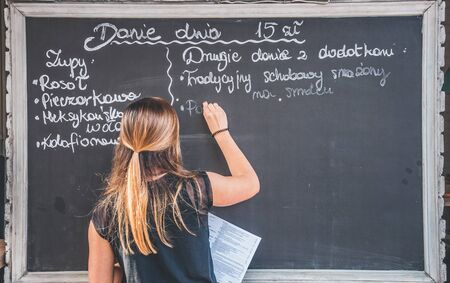 Danie dnia 15 zł
Zupy:
• Rosół
• Pieczarkowa
• Meksykańska
• Kalafiorowa
Drugie danie z dodatkami:
• Tradycyjny schabowy smażony
na smalcu
• Po